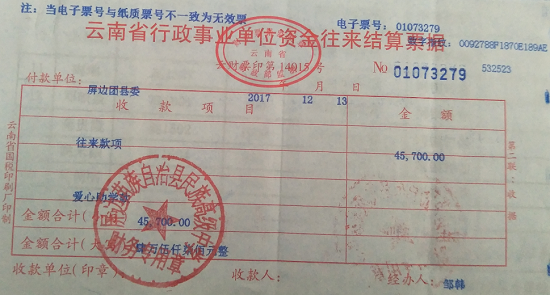 注：当电子票号与纸质票号不一致为无效票
电子票号：01073279
云南省行政事业单位资金往来结算票据
0092788F1870E189AE
云财
印第14018号
№ 01073279
532523
付款单位：屏边团县委
2017年12月13日
收款项目
金额
往来款项
45,700.00
爱心助学款
金额合计(
45,700.00
金额合计(大写)
肆万伍仟柒佰元整
收款单位(印章)
收款人：
经办人：邹韩
云南省国税印刷厂印制
第二联：收据
自治县民族高级中学
财务专用章